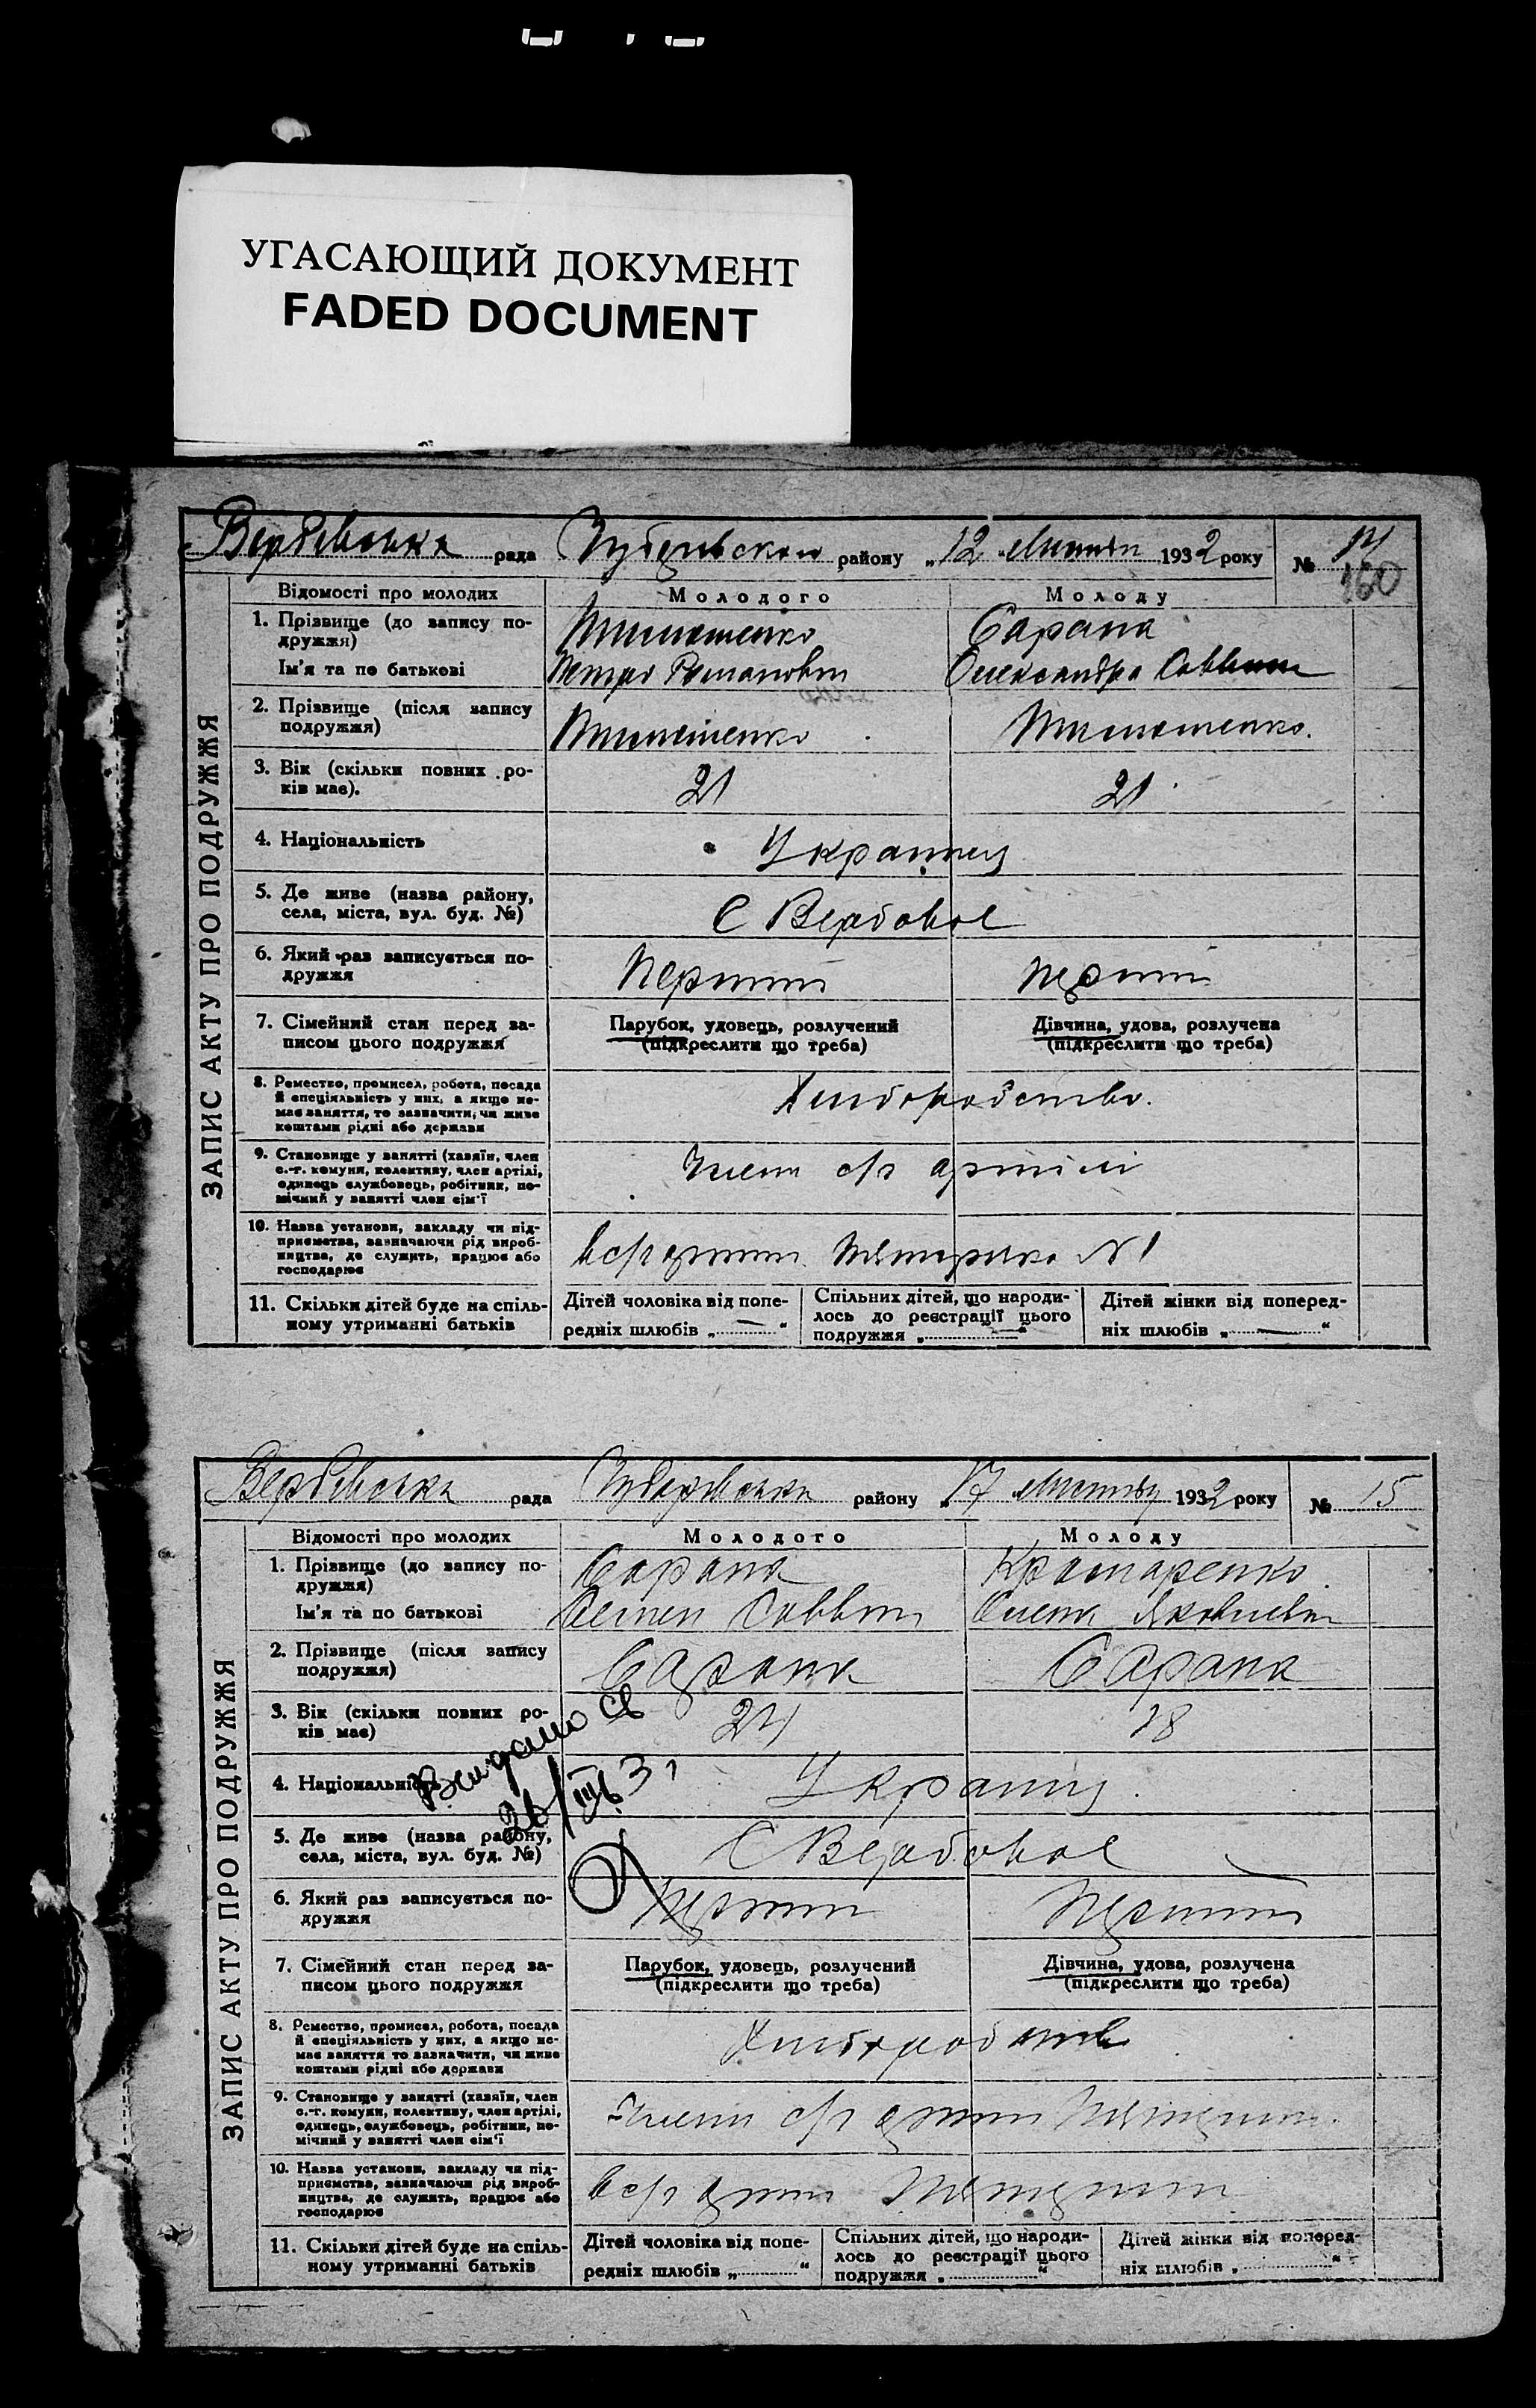 УГАСАЮЩИЙ ДОКУМЕНТ
FADED DOCUMENT
Вербівська рада району „12 1932 року № 14
160
Відомості про молодих Молодого Молоду
ЗАПИС АКТУ ПРО ПОДРУЖЖЯ
1. Прізвище (до запису по- Тимошенко Сарана
дружжя)
Ім'я та по батькові Петро Романович Олександра Саввишна
2. Прізвище (після запису Тимошенко Тимошенко.
подружжя)
3. Вік (скільки повних ро- 21 21
ків має).
4. Національність Українці
5. Де живе (назва району, С Вербовое
села, міста, вул. буд. №)
6. Який раз записується по- Перший перший
дружжя
7. Сімейний стан перед за- Парубок, удовець, розлучений Дівчина, удова, розлучена
писом цього подружжя (підкреслити що треба) (підкреслити що треба)
8. Ремество, промисел, робота, посада Хліборобство.
й спеціяльність у них, а якщо не-
має заняття, то зазначити, чи живе
коштами рідні або держави
9. Становище у занятті (хазяїн, член Член с/г артілі
с.-г. комуни, колективу, член артілі,
одинець службовець, робітник, по-
мічний у занятті член сім'ї
10. Назва установи, закладу чи під- в с/г артілі N 1
приємства, зазначаючи рід вироб-
ництва, де служить, працює або
господарює
11. Скільки дітей буде на спіль- Дітей чоловіка від попе- Спільних дітей, що народи- Дітей жінки від поперед-
ному утриманні батьків редніх шлюбів „ — “ лось до реєстрації цього ніх шлюбів „ — “
подружжя „ — “
Вербівська рада району „17 1932 року № 15
Відомості про молодих Молодого Молоду
ЗАПИС АКТУ ПРО ПОДРУЖЖЯ
1. Прізвище (до запису по- Сарана Крамаренко
дружжя)
Ім'я та по батькові Семен Саввич Олена Яковлевна
2. Прізвище (після запису Сарана Сарана
подружжя)
3. Вік (скільки повних ро- 24 18
ків має)
Видано св
4. Національність Українці
26/III
5. Де живе (назва району, С Вербовое
села, міста, вул. буд. №)
6. Який раз записується по- Перший Перший
дружжя
7. Сімейний стан перед за- Парубок, удовець, розлучений Дівчина, удова, розлучена
писом цього подружжя (підкреслити що треба) (підкреслити що треба)
8. Ремество, промисел, робота, посада Хліборобств
й спеціяльність у них, а якщо не-
має заняття то зазначити, чи живе
коштами рідні або держави
9. Становище у занятті (хазяїн, член Член с/г артілі
с.-г. комуни, колективу, член артілі,
одинець, службовець, робітник, по-
мічний у занятті член сім'ї
10. Назва установи, закладу чи під- в с/г артілі
приємства, зазначаючи рід вироб-
ництва, де служить, працює або
господарює
11. Скільки дітей буде на спіль- Дітей чоловіка від попе- Спільних дітей, що народи- Дітей жінки від поперед-
ному утриманні батьків редніх шлюбів „ “ лось до реєстрації цього ніх шлюбів „ “
подружжя „ “